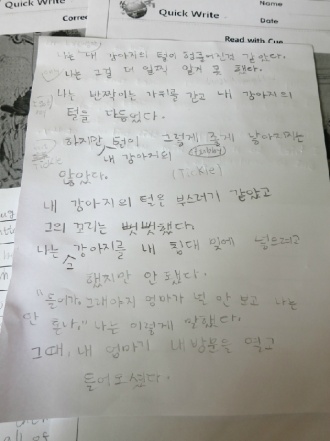 Quick Write
Name
Quick Write
Date
Read with Cue
나는 내 강아지의 털이 헝클어진걸 같았다.
나는 그걸 더 일찍 알게 못 했다.
나는 반짝이는 가위를 갖고 내 강아지의
털을 다듬었다.
하지만 털이 그렇게 좋게 보이지는
내 강아지의 (Tubby)
않았다. (Tickle)
내 강아지의 털은 부스러기 같았고
그의 꼬리는 뻣뻣했다.
나는 그 강아지를 내 침대 밑에 넣으려고
했지만 안 됐다.
"들어가, 그래야지 엄마가 널 안 보고 나는
안 혼나." 나는 이렇게 말했다.
그때, 내 엄마가 내 방문을 열고
들어오셨다.